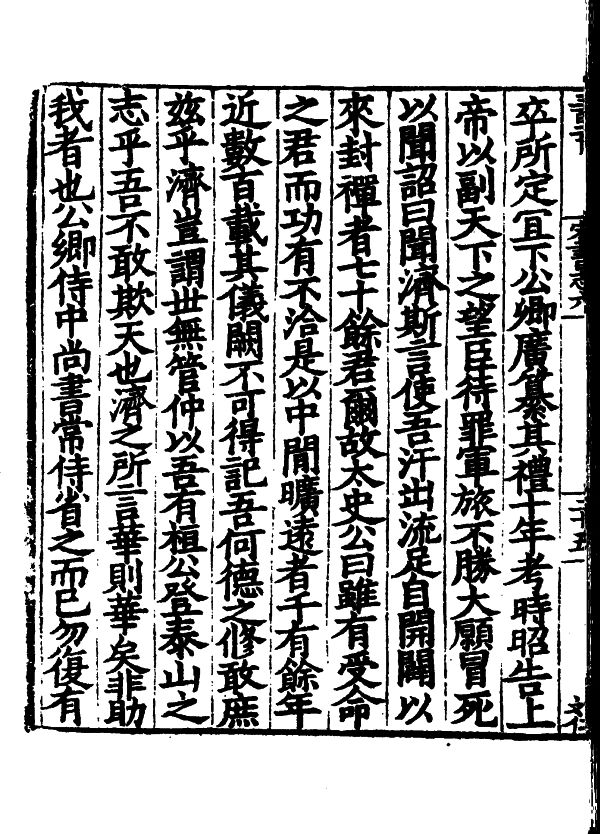 卒所定宜下公卿廣纂其禮十年考時昭告上
帝以副天下之望臣待罪軍旅不勝大願冒死
以聞詔曰聞濟斯言使吾汗出流足自開闢以
來封禪者七十餘君爾故太史公曰雖有受命
之君而功有不洽是以中間曠遠者千有餘年
近數百載其儀闕不可得記吾何德之修敢庶
茲乎濟豈謂世無管仲以吾有桓公登泰山之
志乎吾不敢欺天也濟之所言華則華矣非助
我者也公卿侍中尚書常侍省之而已勿復有